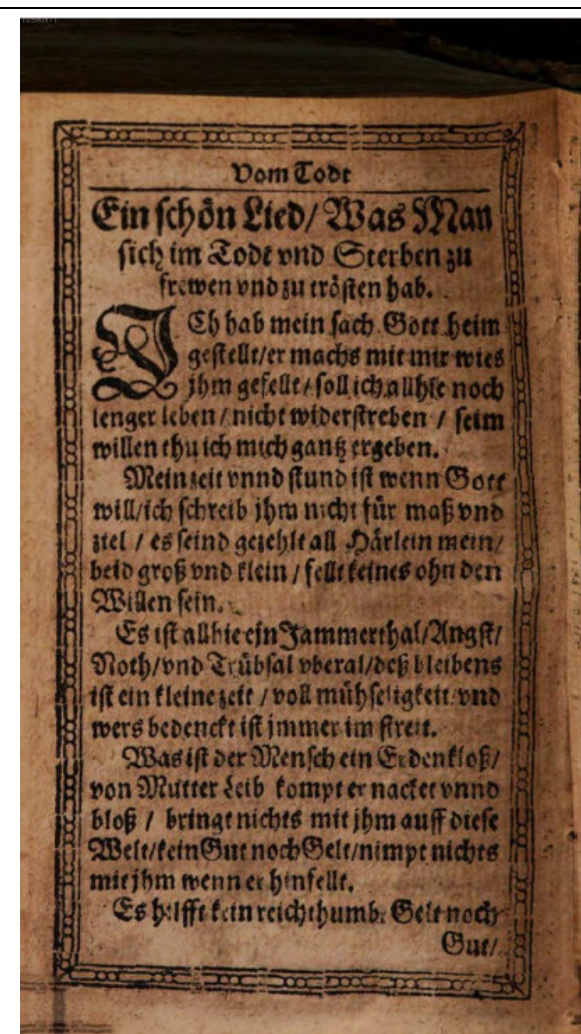 Vom Todt
Ein schön Lied/ Was Man
sich im Todt vnd Sterben zu
frewen vnd zu trösten hab.
ICh hab mein sach Gott heim
gestellt/er machs mit mir wies
jhm gefellt/ soll ich allhie noch
lenger leben / nicht widerstreben / seim
willen thu ich mich gantz ergeben.
Mein zeit vnnd stund ist wenn Gott
will/ich schreib jhm nicht für maß vnd
ziel / es seind gezehlt all Härlein mein/
beid groß vnd klein / fellt keines ohn den
Willen sein.
Es ist allhie ein Jammerthal/Angst/
Noth/vnd Trübsal vberal/deß bleibens
ist ein kleine zeit / voll mühseligkeit vnd
wers bedenckt ist jmmer im streit.
Was ist der Mensch ein Erdenkloß/
von Mutter Leib kompt er nacket vnnd
bloß / bringt nichts mit jhm auff diese
Welt/kein Gut noch Gelt/nimpt nichts
mit jhm wenn er hinfellt.
Es hilfft kein reichthumb Gelt noch
Gut/